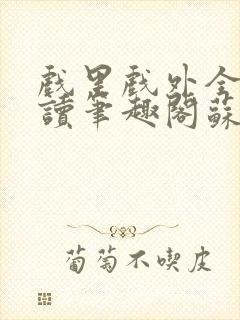 戲里戲外全
讀筆趣閣蘇
葡萄不喫皮